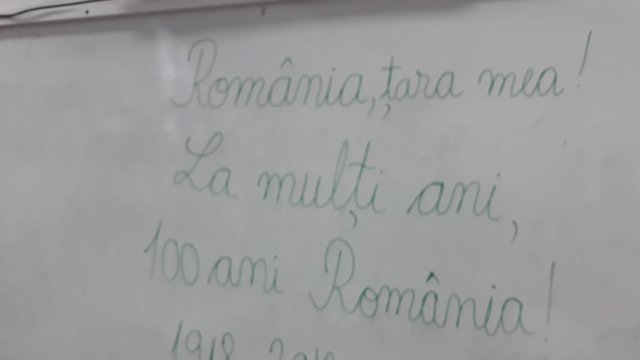 România, țara mea!
La mulți ani,
100 ani România!
1918